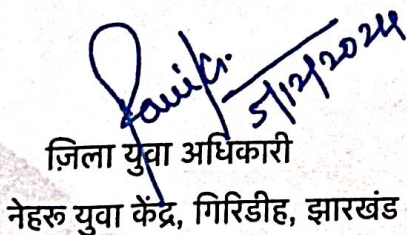 5/12/2024
ज़िला युवा अधिकारी
नेहरू युवा केंद्र, गिरिडीह, झारखंड